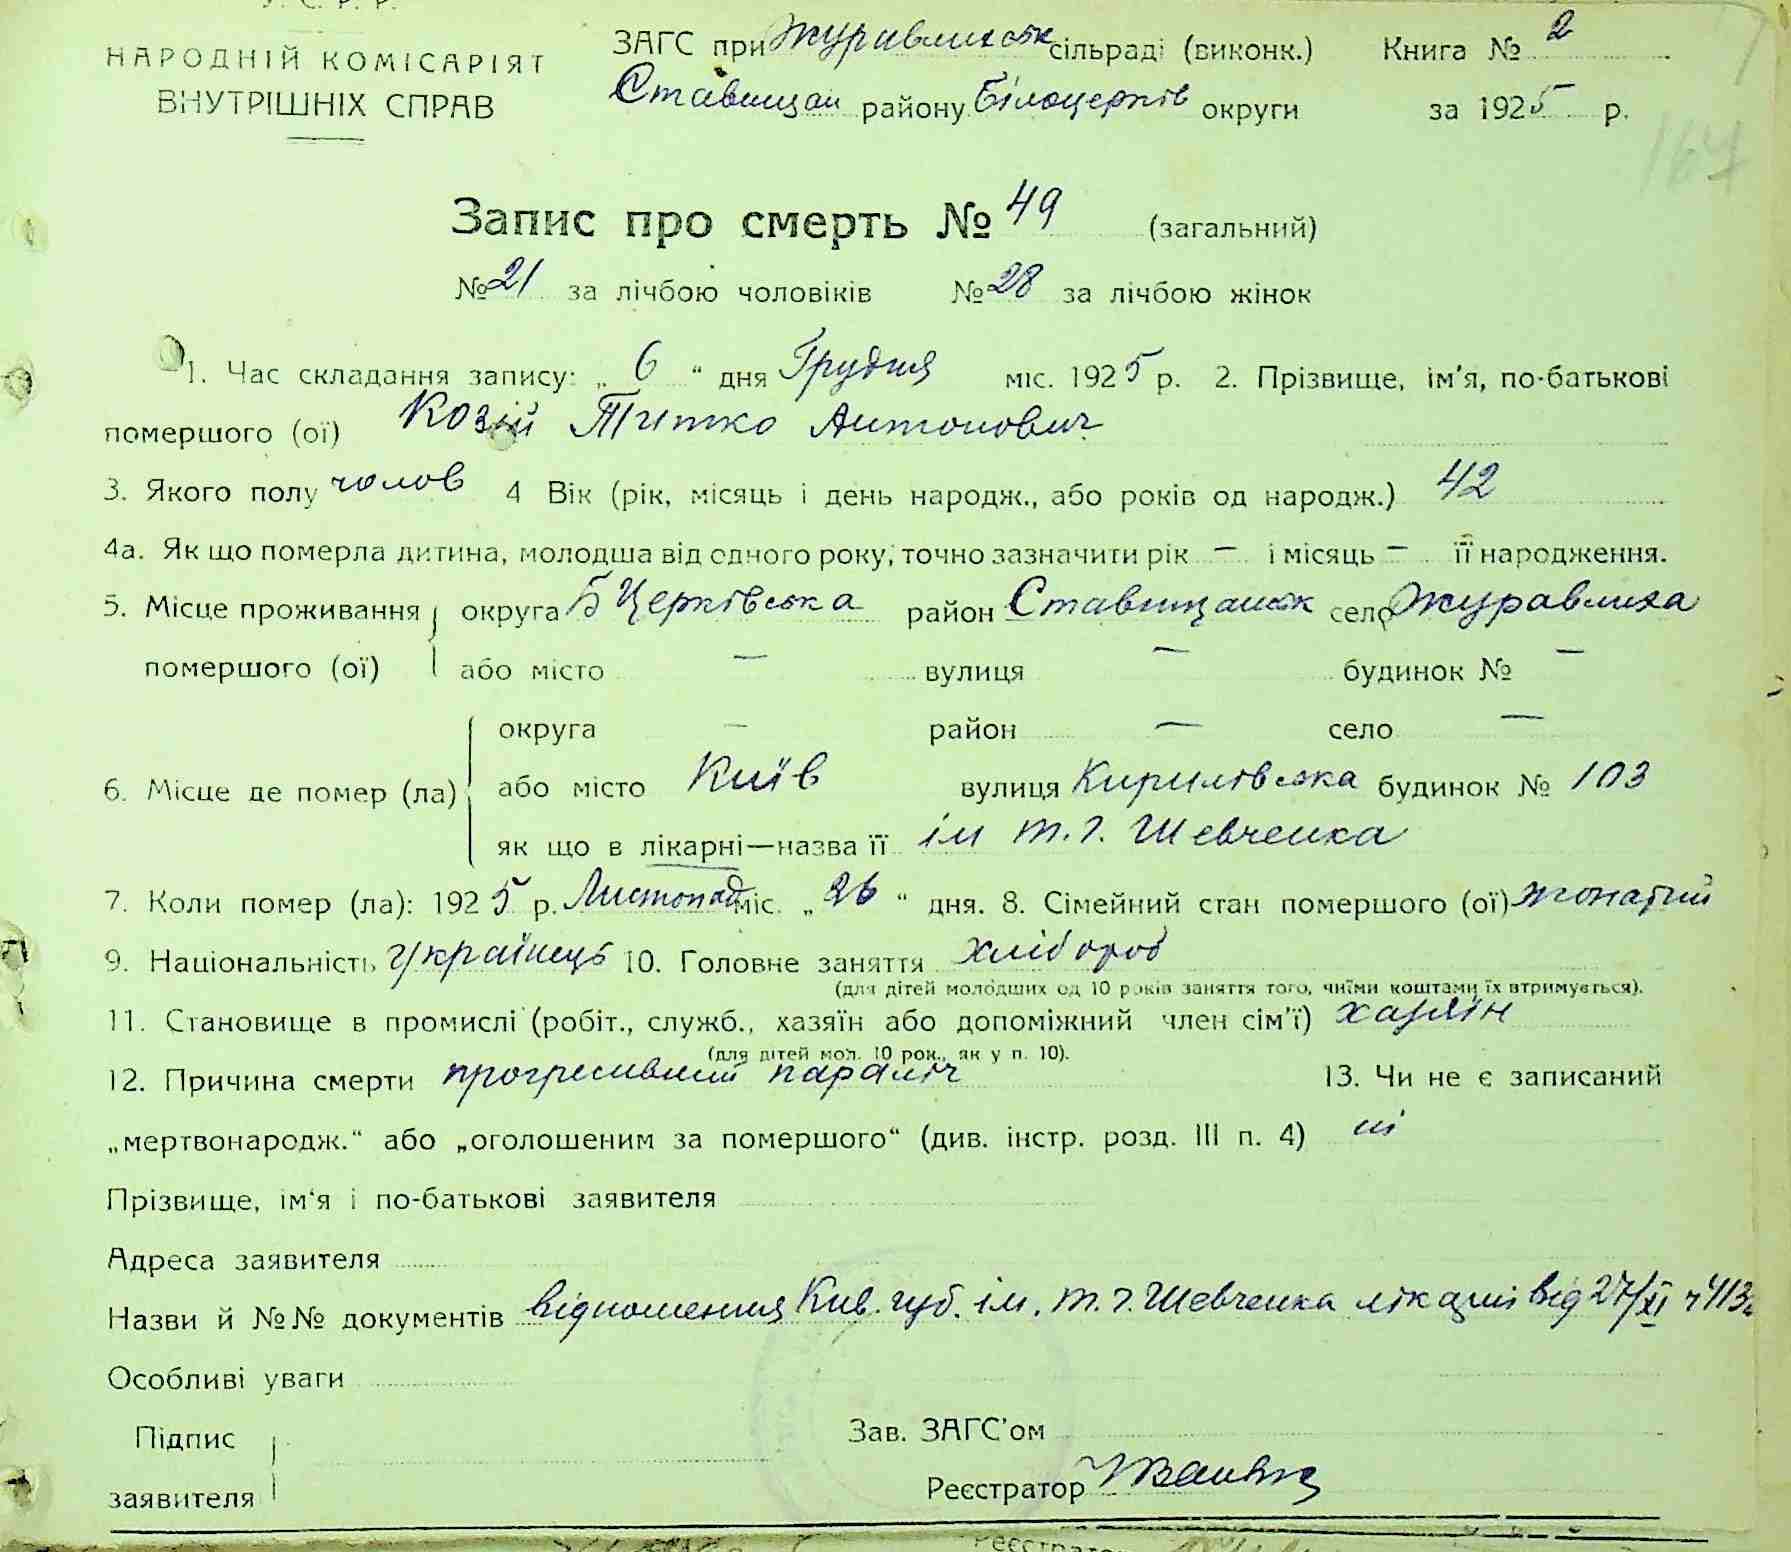 У. С. Р. Р.
НАРОДНІЙ КОМІСАРІЯТ
ВНУТРІШНІХ СПРАВ
ЗАГС при Журавлихськ сільраді (виконк.) Книга № 2
Ставищан району Білоцерків округи за 1925 р.
167
Запис про смерть № 49 (загальний)
№ 21 за лічбою чоловіків № 28 за лічбою жінок
1. Час складання запису: „ 6 “ дня Грудня міс. 1925 р. 2. Прізвище, ім'я, по-батькові
помершого (ої) Козій Титко Антонович
3. Якого полу чолов 4 Вік (рік, місяць і день народж., або років од народж.) 42
4а. Як що померла дитина, молодша від одного року, точно зазначити рік — і місяць — її народження.
5. Місце проживання округа Б Церківська район Ставищанськ село Журавлиха
помершого (ої) або місто — вулиця — будинок № —
округа — район — село —
6. Місце де помер (ла) або місто Київ вулиця Кирилівська будинок № 103
як що в лікарні—назва її ім Т. Г. Шевченка
7. Коли помер (ла): 1925 р. Листопад міс. „ 26 “ дня. 8. Сімейний стан помершого (ої) жонатий
9. Національність Українець 10. Головне заняття хлібороб
(для дітей молодших од 10 років заняття того, чиїми коштами їх втримується).
11. Становище в промислі (робіт., служб., хазяїн або допоміжний член сім'ї) хазяїн
(для дітей мол. 10 рок., як у п. 10).
12. Причина смерти прогресивний параліч 13. Чи не є записаний
„мертвонародж.“ або „оголошеним за помершого“ (див. інстр. розд. III п. 4) ні
Прізвище, ім'я і по-батькові заявителя
Адреса заявителя
Назви й №№ документів відношення Київ. губ. ім. Т. Г. Шевченка лікарні від 27/XI
Особливі уваги
Підпис
заявителя
Зав. ЗАГС'ом
Реєстратор